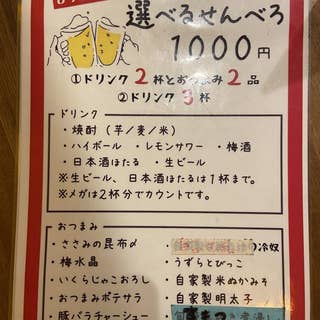 選べるせんべろ
1000円
①ドリンク2杯とおつまみ2品
②ドリンク3杯
ドリンク
・焼酎（芋/麦/米）
・ハイボール ・レモンサワー ・梅酒
・日本酒ほたる ・生ビール
※生ビール、日本酒ほたるは1杯まで。
※メガは2杯分でカウントです。
おつまみ
・ささみの昆布〆
・梅水晶
・いくらじゃこおろし
・おつまみポテサラ
・豚バラチャーシュー
の冷奴
・うずらとびっこ
・自家製米ぬかみそ
・自家製明太子